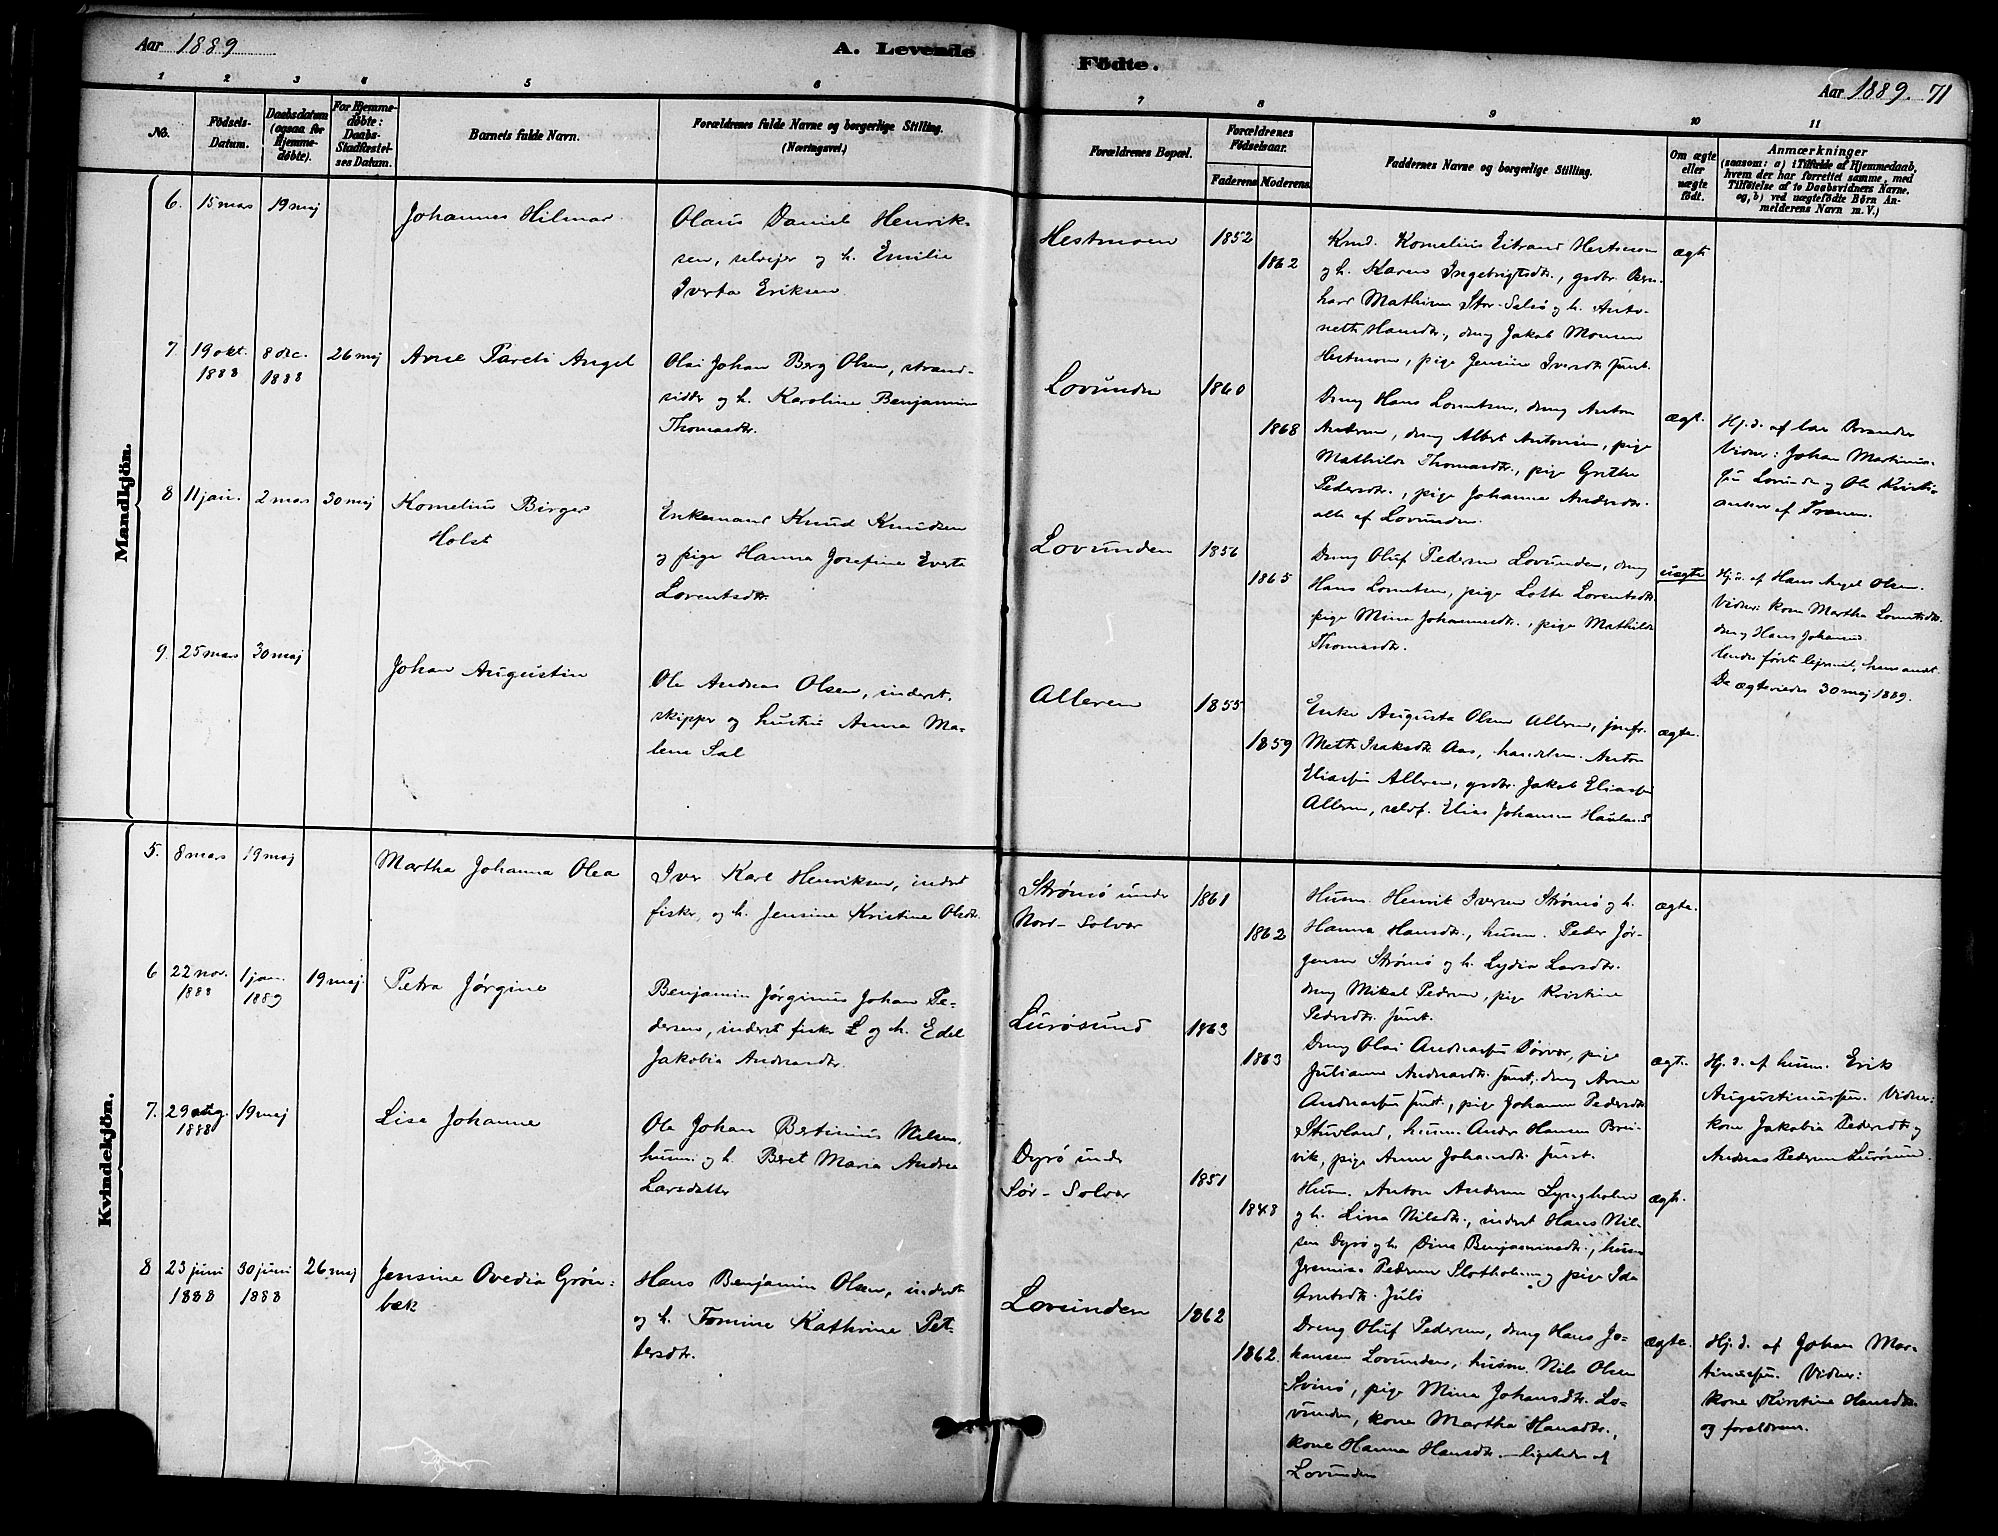 Aar 1889
A. Levende
Födte.
Aar 1889. 71
1 2 3 4 5 6 7 8 9 10 11
No.
Födsels-
Datum.
Daabsdatum
(ogsaa for
Hjemme-
døbte).
For Hjemme-
døbte:
Daabs-
Stadfæstel-
ses Datum.
Barnets fulde Navn.
Forældrenes fulde Navne og borgerlige Stilling.
(Næringsvei.)
Forældrenes Bopæl.
Forældrenes
Födselsaar.
Faderens Moderens
Faddernes Navne og borgerlige Stilling.
Om ægte
eller
uægte
født.
Anmærkninger
(saasom: a) i Tilfælde af Hjemmedaab,
hvem der har forrettet samme, med
Tilføielse af to Daabsvidners Navne,
og, b) ved uægtefødte Börn An-
melderens Navn m. V.)
Mandkjön.
6. 15 mars 19 maj
Johannes Hilmar
Olaus Daniel Henrik-
sen, selvejer og h. Emilie
Iverta Eriksen
Hestmoen 1852
1862
Kmd. Kornelius Eitrand Hestmoen
og h. Karen Ingebrigtsdtr., gsdbr. Bern-
hard Mathisen Stor-Selsø og h. Anto-
nette Hansdtr., dreng Jakob Monsen
Hestmoen, pige Jensine Iversdtr. smst.
ægte
7 19 okt. 8 dec. 26 maj
1888 1888
Arne Pareli Angel
Olai Johan Berg Olsen, strand-
sidder og h. Karoline Benjamine
Thomasdtr.
Lovunden 1860
1868
Dreng Hans Lorentsen, dreng Anton
Andersen, dreng Albert Antonsen, pige
Mathilde Thomasdtr., pige Grethe
Pedersdtr., pige Johanna Andersdtr.
alle af Lovunden.
ægt.
Hj. d. af
Vidner: Johan Martinus-
sen Lovunden og Ole Kristi-
ansen af Trænen.
8 11 jan. 2 mars 30 maj
Kornelius Birger
Holst
Enkemand Knud Knudsen
og pige Hanna Josefine Everta
Lorentsdtr.
Lovunden 1856
1865
Dreng Oluf Pedersen Lovunden, dreng
Hans Lorentsen, pige Lotte Lorentsdtr.
pige Mina Johannesdtr., pige Mathilde
Thomasdtr.
uægte
Hj. d. af Hans Angel Olsen.
Vidner: kone Martha Lorentsdtr.
dreng Hans Johansen.
hendes første lejermål, hans andet.
De ægteviedes 30 maj 1889.
9. 25 mars 30 maj
Johan Augustin
Ole Andreas Olsen, inderst,
skipper og hustru Anna Ma-
lena Sal
Alleren 1855
1859
Enke Augusta Olsen Alleren, jomfr.
Meth Isaksdtr. Aas, handelsm. Anton
Eliassen Alleren, gsdbr. Jakob Eliassen
Alleren, selvf. Elias Johansen
ægte.
Kvindekjön.
5. 8 mars 19 maj
Martha Johanna Olea
Iver Karl Henriksen, inderst
fisker, og h. Jensine Kristine Olsdtr.
Strømø under
Nord-Solvær
1861
1862
Husm. Henrik Iversen Strømø og h.
Hanna Hansdtr., husm. Peder Jør-
gensen Strømø og h. Lydia Larsdtr.
dreng Mikal Pedersen, pige Kristine
Pedersdtr. smst.
ægte.
6 22 nov. 1 jan. 19 maj
1888 1889
Petra Jørgine
Benjamin Jørginus Johan Pe-
dersen, inderst fisker L og h. Edel
Jakobia Andreasdtr.
Lurøsund 1863
1863
Dreng Olai Andreassen Dørvær, pige
Julianne Andreasdtr. smst., dreng Arne
Andreassen smst., pige Johanna Pedersdtr.
Stuvland, husm. Anders Hansen Brei-
vik, pige Anne Johansdtr. smst.
ægt.
Hj. d. af husm. Erik
Augustinussen. Vidner:
kone Jakobia Pedersdtr. og
Andreas Pedersen Lurøsund.
7. 29 aug. 19 maj
1888
Lise Johanne
Ole Johan Bertinius Nilsen,
husm. og h. Beret Maria Andrea
Larsdatter
Dyrø under
Sør-Solvær
1851
1848
Husm. Anton Andersen Lyngholm
og h. Lina Nilsdtr., inderst Hans Nil-
sen Dyrø og h. Dina Benjaminsdtr., husm.
Jremias Pedersen Slotholmen og pige Ida
ægte.
8 23 juni 30 juni 26 maj
1888 1888
Jensine Ovedia Grøn-
bæk
Hans Benjamin Olsen, inderst
og h. Tomine Kathrine Pet-
tersdtr.
Lovunden 1862
1862.
Dreng Oluf Pedersen, dreng Hans Jo-
hansen Lovunden, husm. Nils Olsen
Svinø, pige Mina Johansdtr. Lo-
vunden, kone Martha Hansdtr.,
kone Hanna Hansdtr. ligeledes af
Lovunden
ægte.
Hj. d. af Johan Mar-
tinussen. Vidner:
kone Kirstine Hansdtr.
og forældrene.